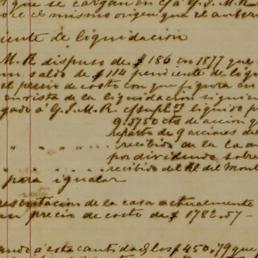 que se cargan en C/a G.J.M.R.
de el mismo origen que el anterior
iente de liquidacion
M.R. dispuso de $186 en 1877 que
un saldo de $114 pendiente de liq
el precio de costo con que figura en
en vista de la liquidacion siguien
gado á G.J.M.R. liquido p
9.3750 cts de accion q
reparto de 9 acciones de
" " recibido de la
por dividendo sobre
" " recibido del Rl. del Monte
para igualar
resentacion de la casa actualmente
un precio de costo de $1782.57-
ando á esta cantidad los $450,79 que